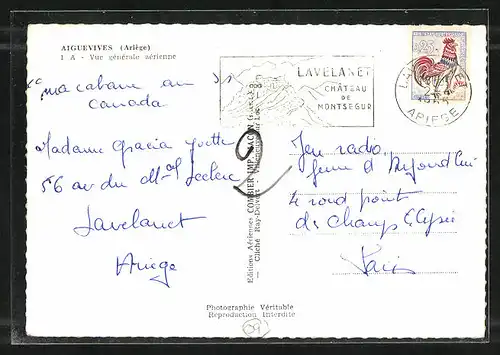 AIGUEVIVES (Ariège)
1 A - Vue générale aérienne
"ma cabane au
canada
Madame Gracia Yvette
56 av du Mal Leclerc
Lavelanet
Ariege
Editions Aériennes COMBIER IMP. MACON
Cliché Ray-Delvert
LAVELANET
CHÂTEAU
DE
MONTSEGUR
0,25
ARIEGE
2
Jeu radio
femme d'Aujourd'hui
4 rond point
des champs Elysée
Paris
Photographie Véritable
Reproduction Interdite
09